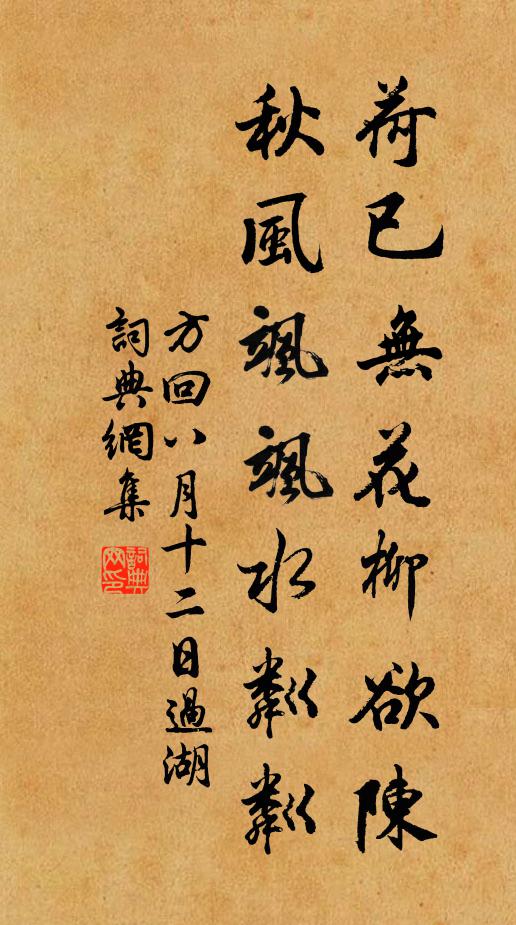 荷已無花柳欲陳
秋風颯颯水粼粼
方回八月十二日過湖
詞典網集
詞典网印